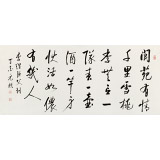 閬苑有情
千里雪桃
李無言一
隊春一壺
酒一竿身
快活如儂
有幾人